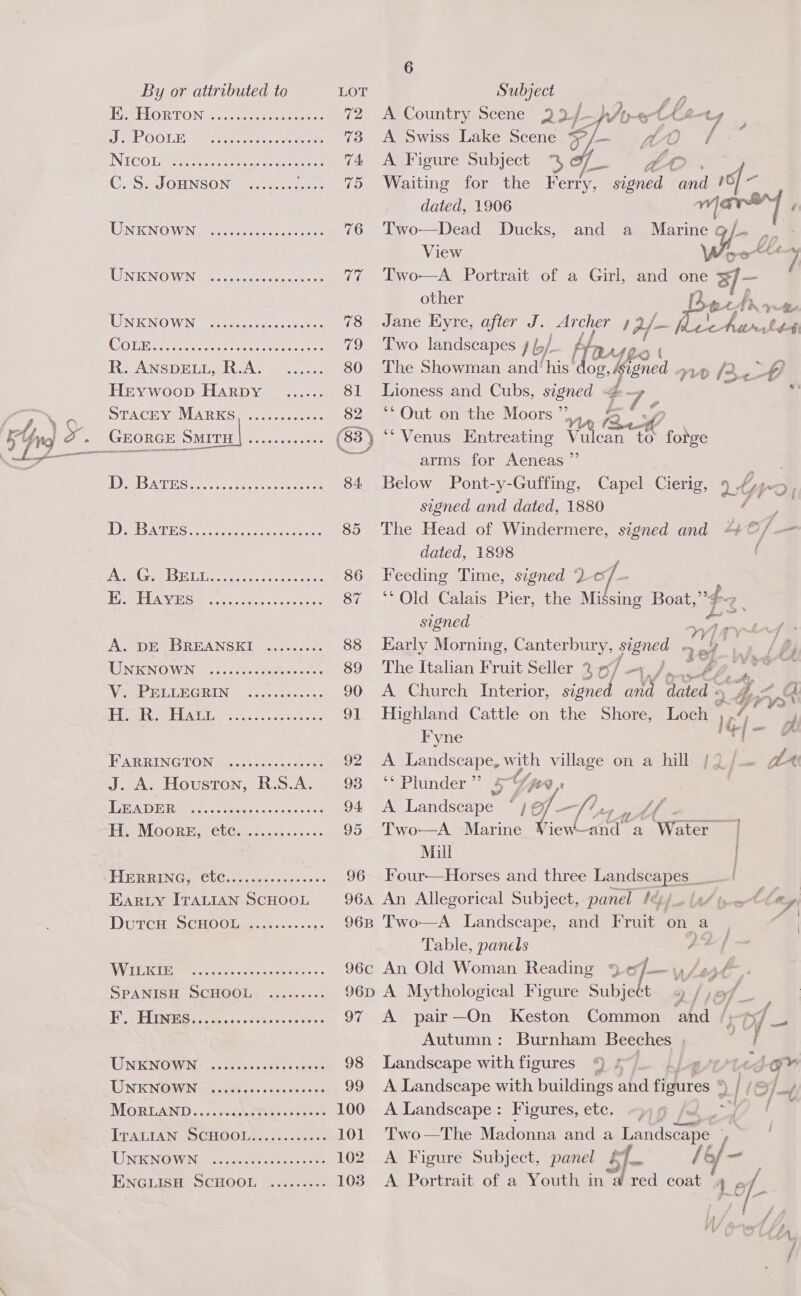 6
By or attributed to LOT Subject
E. HORTON ........ 72 A Country Scene 22/-
J. POOLE ........ 73 A Swiss Lake Scene
NICOL ........ 74 A Figure Subject
C. S. JOHNSON ........ 75 Waiting for the Ferry, signed and
dated, 1906
UNKNOWN ........ 76 Two—Dead Ducks, and a Marine
View
UNKNOWN ........ 77 Two—A Portrait of a Girl, and one
other
UNKNOWN ........ 78 Jane Eyre, after J. Archer 12/-
COLE ........ 79 Two landscapes
R. ANSDELL, R.A. ...... 80 The Showman and his dog, signed
HEYWOOD HARDY ...... 81 Lioness and Cubs, signed
STACEY MARKS ........ 82 “Out on the Moors”
GEORGE SMITH ........ (83) “Venus Entreating Vulcan to forge
arms for Aeneas”
D. BATES ........ 84 Below Pont-y-Guffing, Capel Cierig,
signed and dated, 1880
D. BATES ........ 85 The Head of Windermere, signed and
dated, 1898
A. G. BELL ........ 86 Feeding Time, signed
E. HAYES ........ 87 “Old Calais Pier, the Missing Boat,”
signed
A. DE BREANSKI ........ 88 Early Morning, Canterbury, signed
UNKNOWN ........ 89 The Italian Fruit Seller
V. PELLEGRIN ........ 90 A Church Interior, signed and dated
H. R. HALL ........ 91 Highland Cattle on the Shore, Loch
Fyne
FARRINGTON ........ 92 A Landscape, with village on a hill
J. A. HOUSTON, R.S.A. 93 “Plunder”
LEADER ........ 94 A Landscape
H. MOORE, etc. ........ 95 Two—A Marine View and a Water
Mill
HERRING, etc. ........ 96 Four—Horses and three Landscapes
EARLY ITALIAN SCHOOL 96A An Allegorical Subject, panel
DUTCH SCHOOL ........ 96B Two—A Landscape, and Fruit on a
Table, panels
WILKIE ........ 96C An Old Woman Reading
SPANISH SCHOOL ........ 96D A Mythological Figure Subject
F. HINES ........ 97 A pair—On Keston Common and
Autumn: Burnham Beeches
UNKNOWN ........ 98 Landscape with figures
UNKNOWN ........ 99 A Landscape with buildings and figures
MORLAND ........ 100 A Landscape: Figures, etc.
ITALIAN SCHOOL ........ 101 Two—The Madonna and a Landscape
UNKNOWN ........ 102 A Figure Subject, panel
ENGLISH SCHOOL ........ 103 A Portrait of a Youth in a red coat